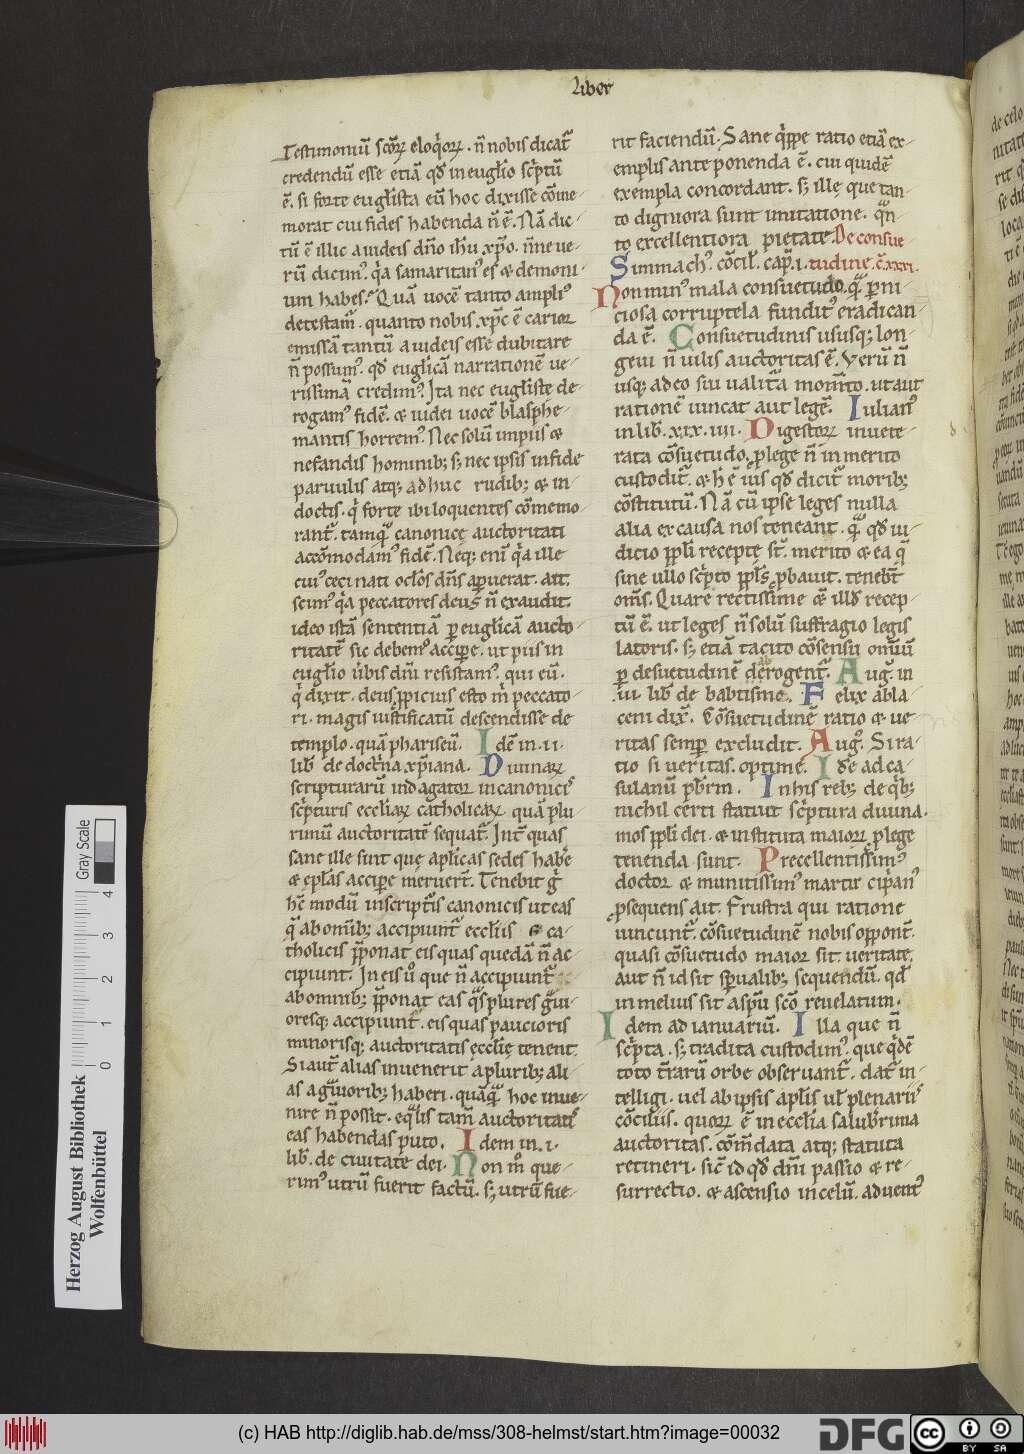 Liber
Testimoniū scōꝝ eloq̇oꝝ. n̄ nobis dicat̄
credendū esse etiā qđ in euglio sc̄ptū
ē. si forte euglista eū hoc dixisse cōme-
morat cui fides habenda n̄ ē. Nā dic-
tū ē illic a iudeis dn̄o ih̄u xp̄o. n̄ne ue-
rū dicim᷒. q̇a samaritan᷒ es & demoni-
um habes. Quā uocē tanto ampli᷒
detestam̄. quanto nobis xp̄c ē carior
emissā tantū a iudeis esse dubitare
n̄ possum᷒. qđ euglicā narrationē ue-
rissimā credim᷒. Ita nec eugliste de-
rogam᷒ fidē. & iudei uocē blasphe-
mantis horrem᷒. Nec solū impiis &
nefandis hominib; s; nec ipsis infide
paruulis atq; adhuc rudib; & in-
doctis. q̇ forte ibi loquentes cōmemo-
rant̄. tamq̄ canonicę auctoritati
accōmodam᷒ fidē. Neq; eni q̇a ille
cui᷒ ceci nati oclos dn̄s apuerat. ait.
scim᷒ q̇a peccatores deus n̄ exaudit.
ideo istā sententiā ꝑ euglicā aucto-
ritatē sic debem᷒ accipe. ut piis in
euglio u̇bis dn̄i resistam᷒. qui eū.
q̇ dixit. deus ꝓpicius esto ṁ peccato-
ri. magis iustificatū descendisse de
templo. quā phariseū. Idē in .ii.
lib̄ de doct̄na xp̄iana. Diuinaꝝ
scripturarū indagator in canonicis
sc̄pturis eccliaꝝ catholicaꝝ quā plu
rimū auctoritatē sequat̄. Int̄ quas
sane ille sint que aplicas sedes habē
& ep̄las accipe meruert̄. Tenebit ġ
hc̄ modū in scripturis canonicis ut eas
q̄ ab omib; accipiunt̄ eccliis & ca-
tholicis p̄ponat eis quas quedā n̄ ac
cipiunt. In eis u̇ que n̄ accipiunt̄
ab omnib; p̄ponat eas q̄s plures ġui-
oresq; accipiunt. eis quas pauciores
minorisq; auctoritatis ecclię tenent.
Si aut̄ alias inuenerit a plurib; ali-
as a ġuiorib; haberi. quāq̄ hoc inue-
nire n̄ possit. eq̇lis tam̄ auctoritatis
eas habendas puto. Idem in .i.
lib. de ciuitate dei. Non m̊ que-
rim᷒ utrū fuerit factū. s; utrū fue-
rit faciendū. Sane q̇ppe ratio etiā ex-
emplis anteponenda ē. cui quidē
exempla concordant. s; illę que tan-
to digniora sunt imitatione. q̄n-
to excellentiora pietate. De consue
Simmach᷒. cōcil. cap̄.i. tudine. c̄.xxxi.
Non mun᷒ mala consuetudo q̄ p̄ni-
ciosa corruptela fundit᷒ eradican-
da ē. Consuetudinis ususq; lon-
geui n̄ uilis auctoritas ē. Verū n̄
usq; adeo sui ualit̄a momto. ut aut
rationē uincat aut legē. Iulian᷒
in lib. xix.iiii. Digestoꝝ inuete-
rata cōsuetudo. ꝓ lege n̄ inmerito
custodit̄. & h̄ ē ius qđ dicit̄ morib;
cōstitutū. Nā cū ipse leges nulla
alia ex causa nos teneant. q̄ qđ iu-
dicio ppli receptę st̄. merito & ea q̄
sine ullo sc̄pto ppls ꝓbauit. tenebt̄
om̄s. Quare rectissime & illđ recep-
tū ē. ut leges n̄ solū suffragio legis
latoris. s; etiā tacito cōsensu om̄iū
ꝑ desuetudinē derogent̄. Auḡ. in
.iii. lib̄ de babtismo. Felix abla
ceni dix̄. Cōsuetudinē ratio & ue-
ritas semp̄ excludit. Aug̊. Si ra-
tio si ueritas. optime. Idē ad ca-
sulanū pb̄rm. In his reb; de q̇b;
nichil certi statuit sc̄ptura diuina.
mos ppli dei. & instituta maioꝝ ꝓ lege
tenenda sunt. Precellentissim᷒
doctor & munitissim᷒ martir cip̄an᷒
ꝓsequens ait. Frustra qui ratione
uincunt̄. cōsuetudinē nobis oppont̄.
quasi cōsuetudo maior sit ueritate.
aut n̄ id sit sp̄ualib; sequendū. qđ
in melius sit a sp̄u scō reuelatum.
Idem ad ianuariū. Illa que n̄
sc̄pta. s; tradita custodim᷒. que q̇dē
toto t̄rarū orbe obseruant̄. dat̄ in-
telligi. uel ab ipsis aplis ul̄ plenariis
cōciliis. quoꝝ ē in ecclia salub̄rima
auctoritas. cōmdata atq; statuta
retineri. sic̄ id qđ dn̄i passio & re-
surrectio. & ascensio in celū. aduent᷒
Herzog August Bibliothek
Wolfenbüttel
0 1 2 3 4
Gray Scale
(c) HAB http://diglib.hab.de/mss/308-helmst/start.htm?image=00032
DFG
cc BY SA